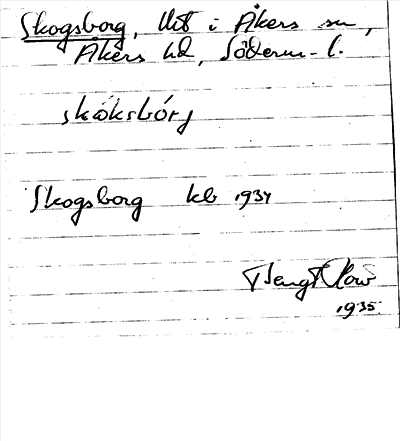 Skogsborg, Uet i Åkers sn,
Åkers hd, Söderm. l.
skóksbórj
Skogsborg kb 1934
Bengt
1935